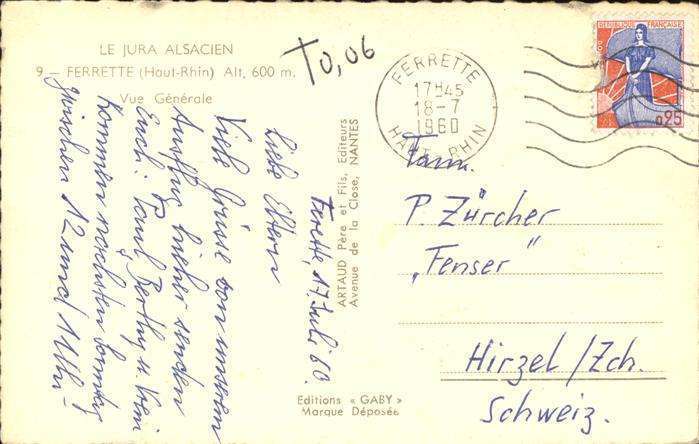 LE JURA ALSACIEN
9 – FERRETTE (Haut-Rhin) Alt, 600 m.
Vue Générale
T0,06
FERRETTE
17H45
18-7
1960
HAUT-RHIN
REPUBLIQUE FRANÇAISE
0,25
Ferette, 17. Juli 60.
Liebe Eltern
Viele Grüsse von unserem
Ausflug hieher senden
Euch: Paul, Berthy u. Vreni
Kommen nächsten Sonntag
zwischen 12 und 1 Uhr!
ARTAUD Père et Fils, Editeurs
Avenue de la Close, NANTES
Editions « GABY »
Marque Déposée
Fam.
P. Zürcher
„Fenser"
Hirzel/Zch.
Schweiz.